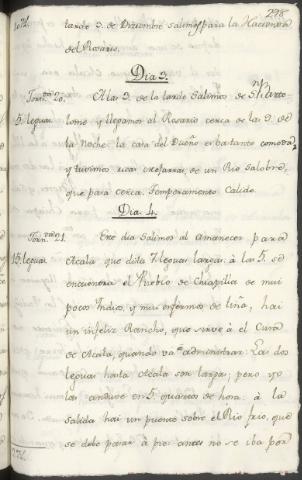 298
tarde 3. de Diciembre salimos para la Hacienda
del Rosario.
Dia 3.
Jorn.da 20.
A las 3. de la tarde salimos de S.n Barto
5. leguas
lomè y llegamos al Rosario cerca de las 9. de
la Noche: la casa del Dueño es bastante comoda,
y tuvimos ricas de un Rio Salobre,
que pasa cerca. Temperamento Calido.
Dia 4.
Jorn.da 21.
Este dia salimos al amanecer para
15. leguas
Acala que dista 7 leguas largas: à las 5. se
encuentra el Pueblo de Chiapilla de mui
pocos Indios, y mui enfermos de tiña, hai
un infeliz Rancho, que sirve à el Cura
de Acala, quando va à administrar: Las dos
leguas hasta Acala son largas; pero yo
las anduve en 5. quartos de hora: à la
salida hai un puente sobre el Rio frio, que
se debe pasar à pie: antes no se iba por